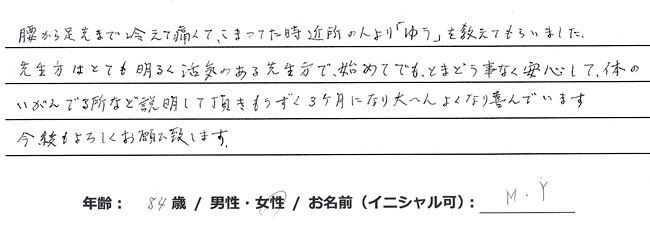 腰から足先まで冷えて痛くて、こまってた時近所の人より「ゆう」を教えてもらいました。
先生方はとても明るく活気のある先生方で、始めてでも、とまどう事なく安心して、体の
いがんでる所など説明して頂きもうすぐ3ケ月になり大へんよくなり喜んでいます
今後もよろしくお願い致します。
年齢： 84 歳 / 男性・女性 / お名前（イニシャル可）： M・Y